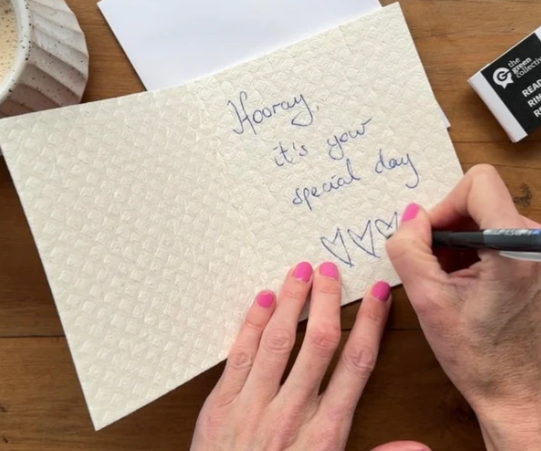 Hooray,
it's your
special day
the
green
collective
READ
RIN
RE